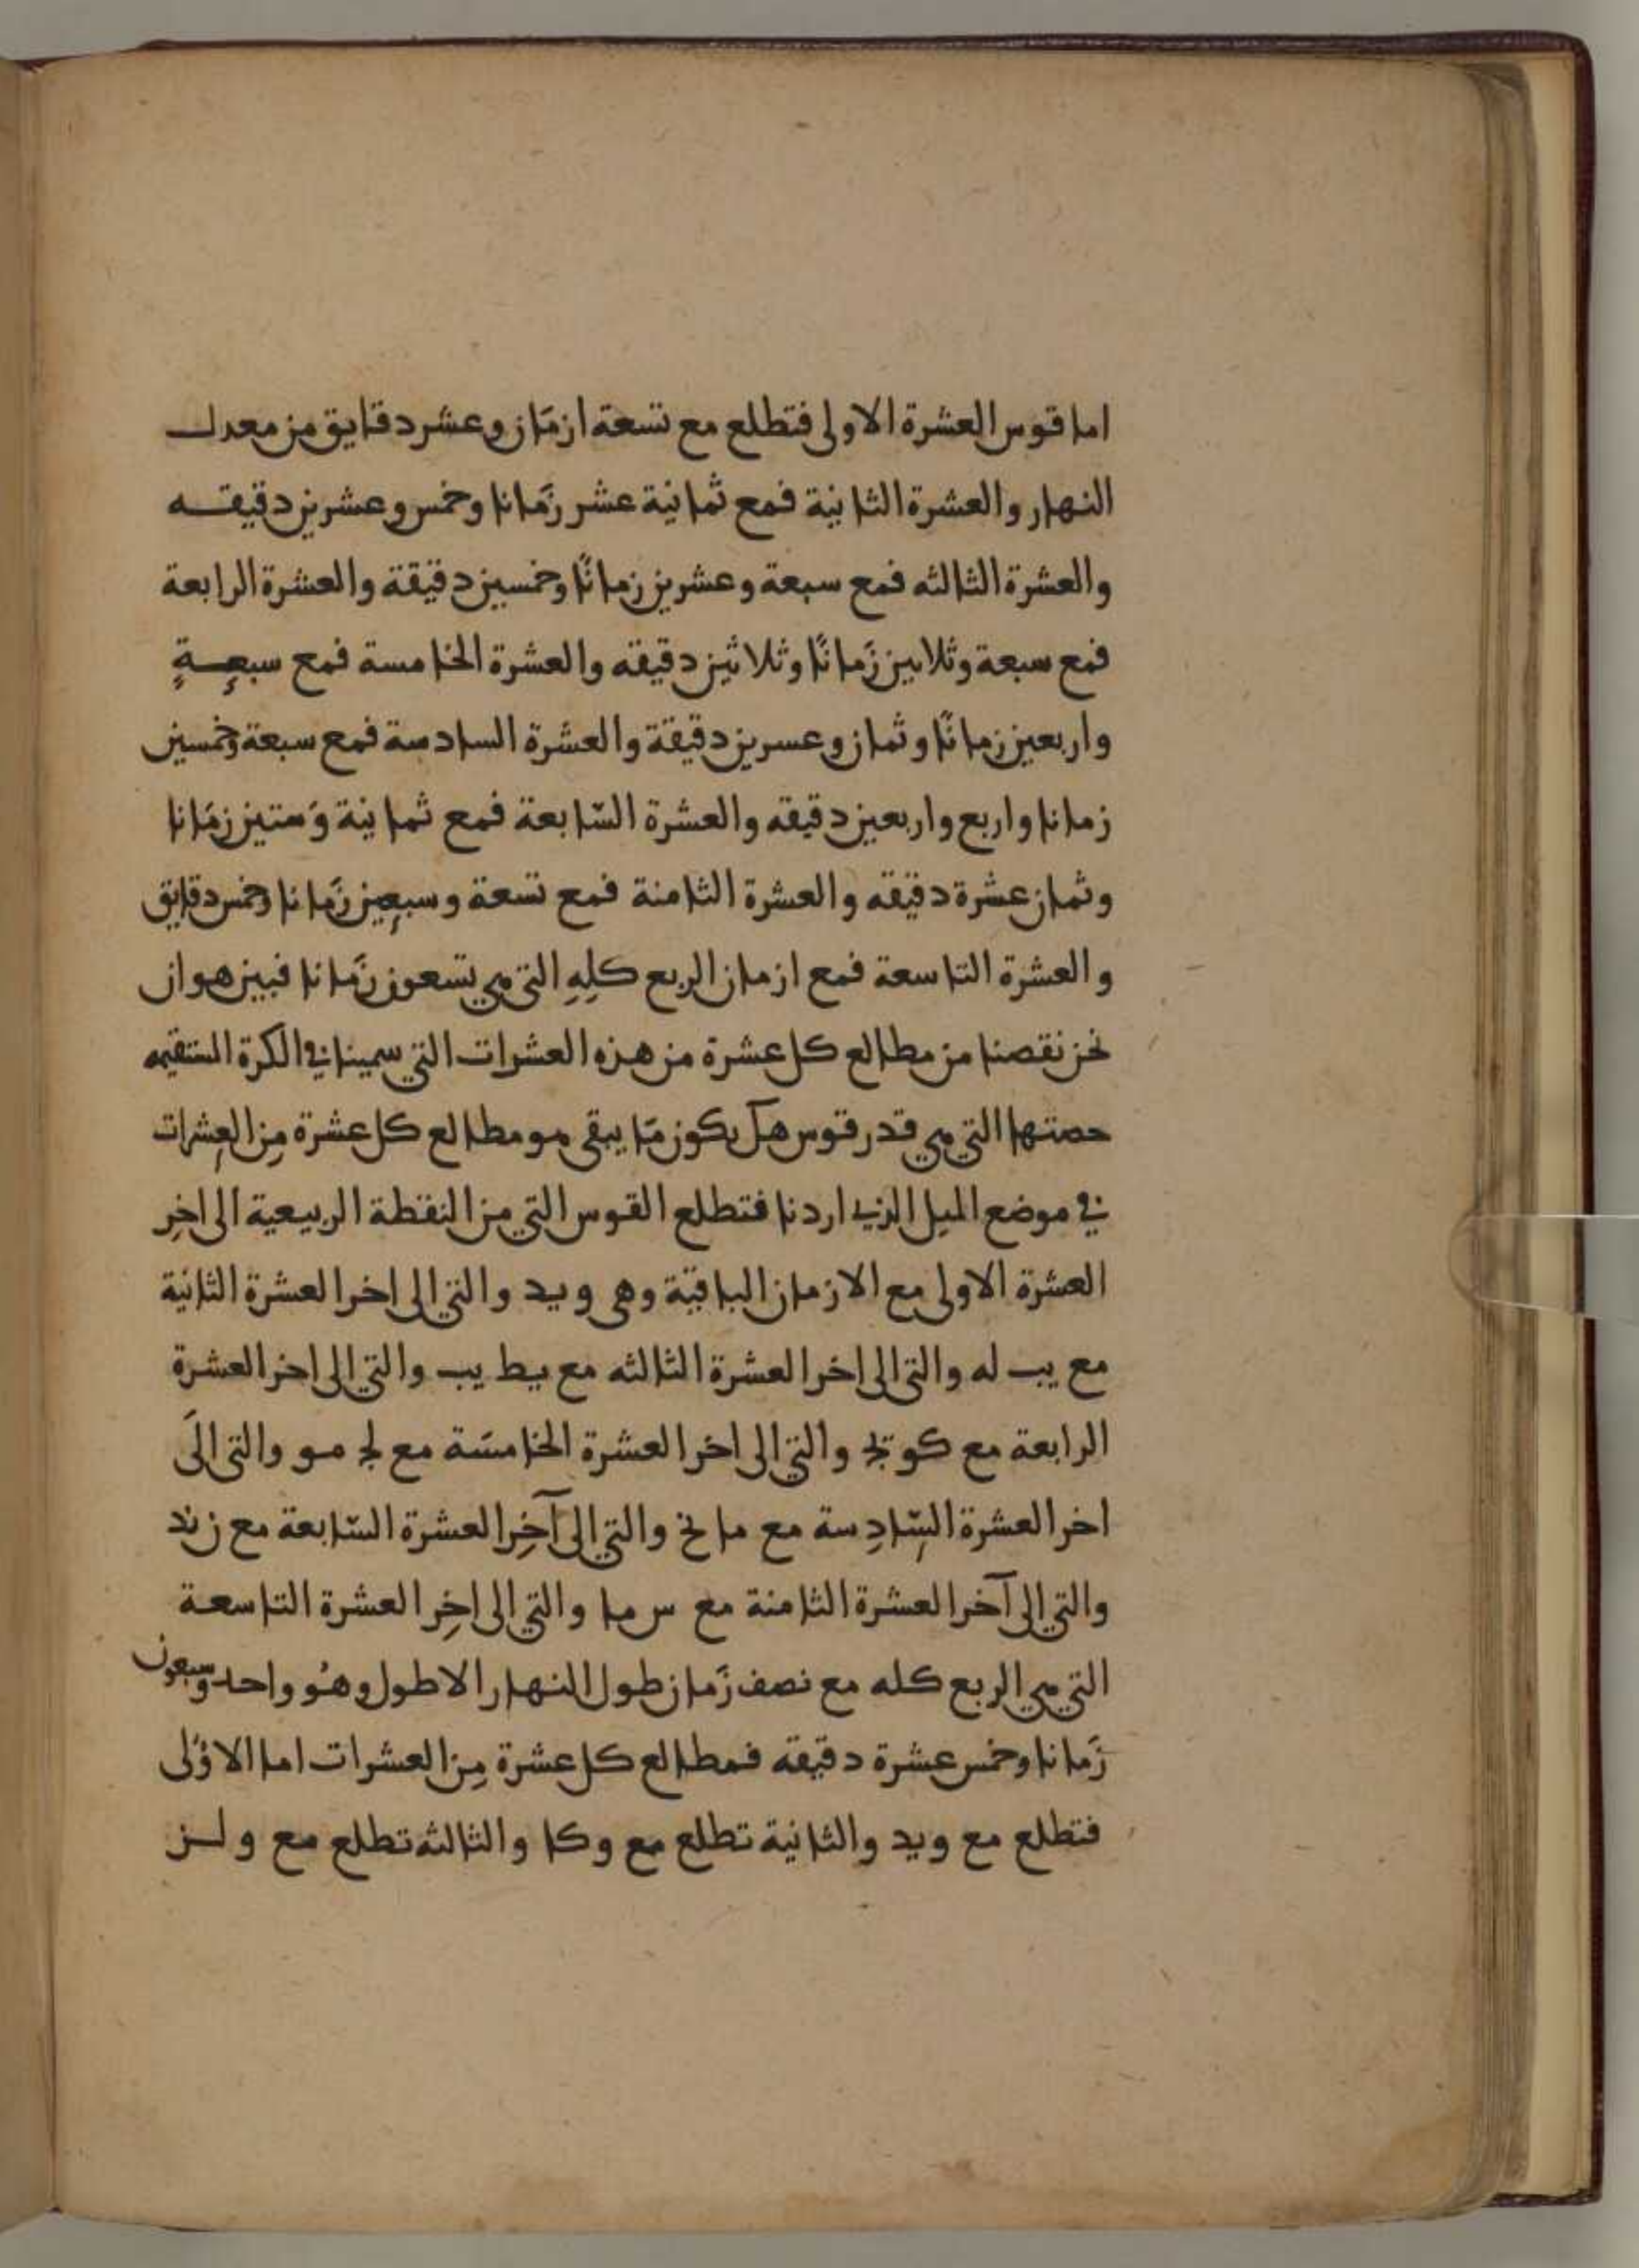 اما قوس العشرة الاولى فتطلع مع تسعة ازمَان وعشر دقايق من معدل
النهار والعشرة الثانية فمع ثمانية عشر زَمانا وخمس وعشرين دقيقه
والعشرة الثالثه فمع سبعة وعشرين زمانًا وخمسين دقيقة والعشرة الرابعة
فمع سبعة وثلاثين زَمانًا وثلاثين دقيقه والعشرة الخامسة فمع سبعِةٍ
واربعين زمانًا وثمان وعسرين دقيقة والعشرة السادسة فمع سبعة وخمسين
زمانا واربع واربعين دقيقه والعشرة السّابعة فمع ثمانية وَستين زمَانا
وثمان عشرة دقيقه والعشرة الثامنة فمع تسعة وسبعِين زَمانا وخمس دقايق
والعشرة التاسعة فمع ازمان الربع كلِهِ التي هي تسعون زَمانا فبين هو ان
نحن نقصنا من مطالع كل عشرة من هذه العشرات التي سمينا في الكرة المستقيمه
حصتها التي هي قدر قوس هـل يكون مَا يبقى هو مطالع كل عشرة مِن العِشرات
في موضع الميل الذي اردنا فتطلع القوس التي من النقطة الربيعية الى اخِر
العشرة الاولى مع الازمان الباقية وهى و يد والتي الى اخر العشرة الثانية
مع يب له والتي الى اخر العشرة الثالثه مع يط يب والتي الى اخر العشرة
الرابعة مع كو يج والتي الى اخر العشرة الخامسَة مع لج مو والتي الىَ
اخر العشرة السّادِسة مع ما نح والتي الى آخِر العشرة السّابعة مع ن ند
والتي الى آخر العشرة الثامنة مع س ما والتي الى اخِر العشرة التاسعة
التي هي الربع كله مع نصف زَمان طول النهار الاطول وهُو واحد وسبعون
زَمانا وخمس عشرة دقيقه فمطالع كل عشرة مِن العشرات اما الاوُلى
فتطلع مع و يد والثانية تطلع مع و كا والثالثه تطلع مع و لز